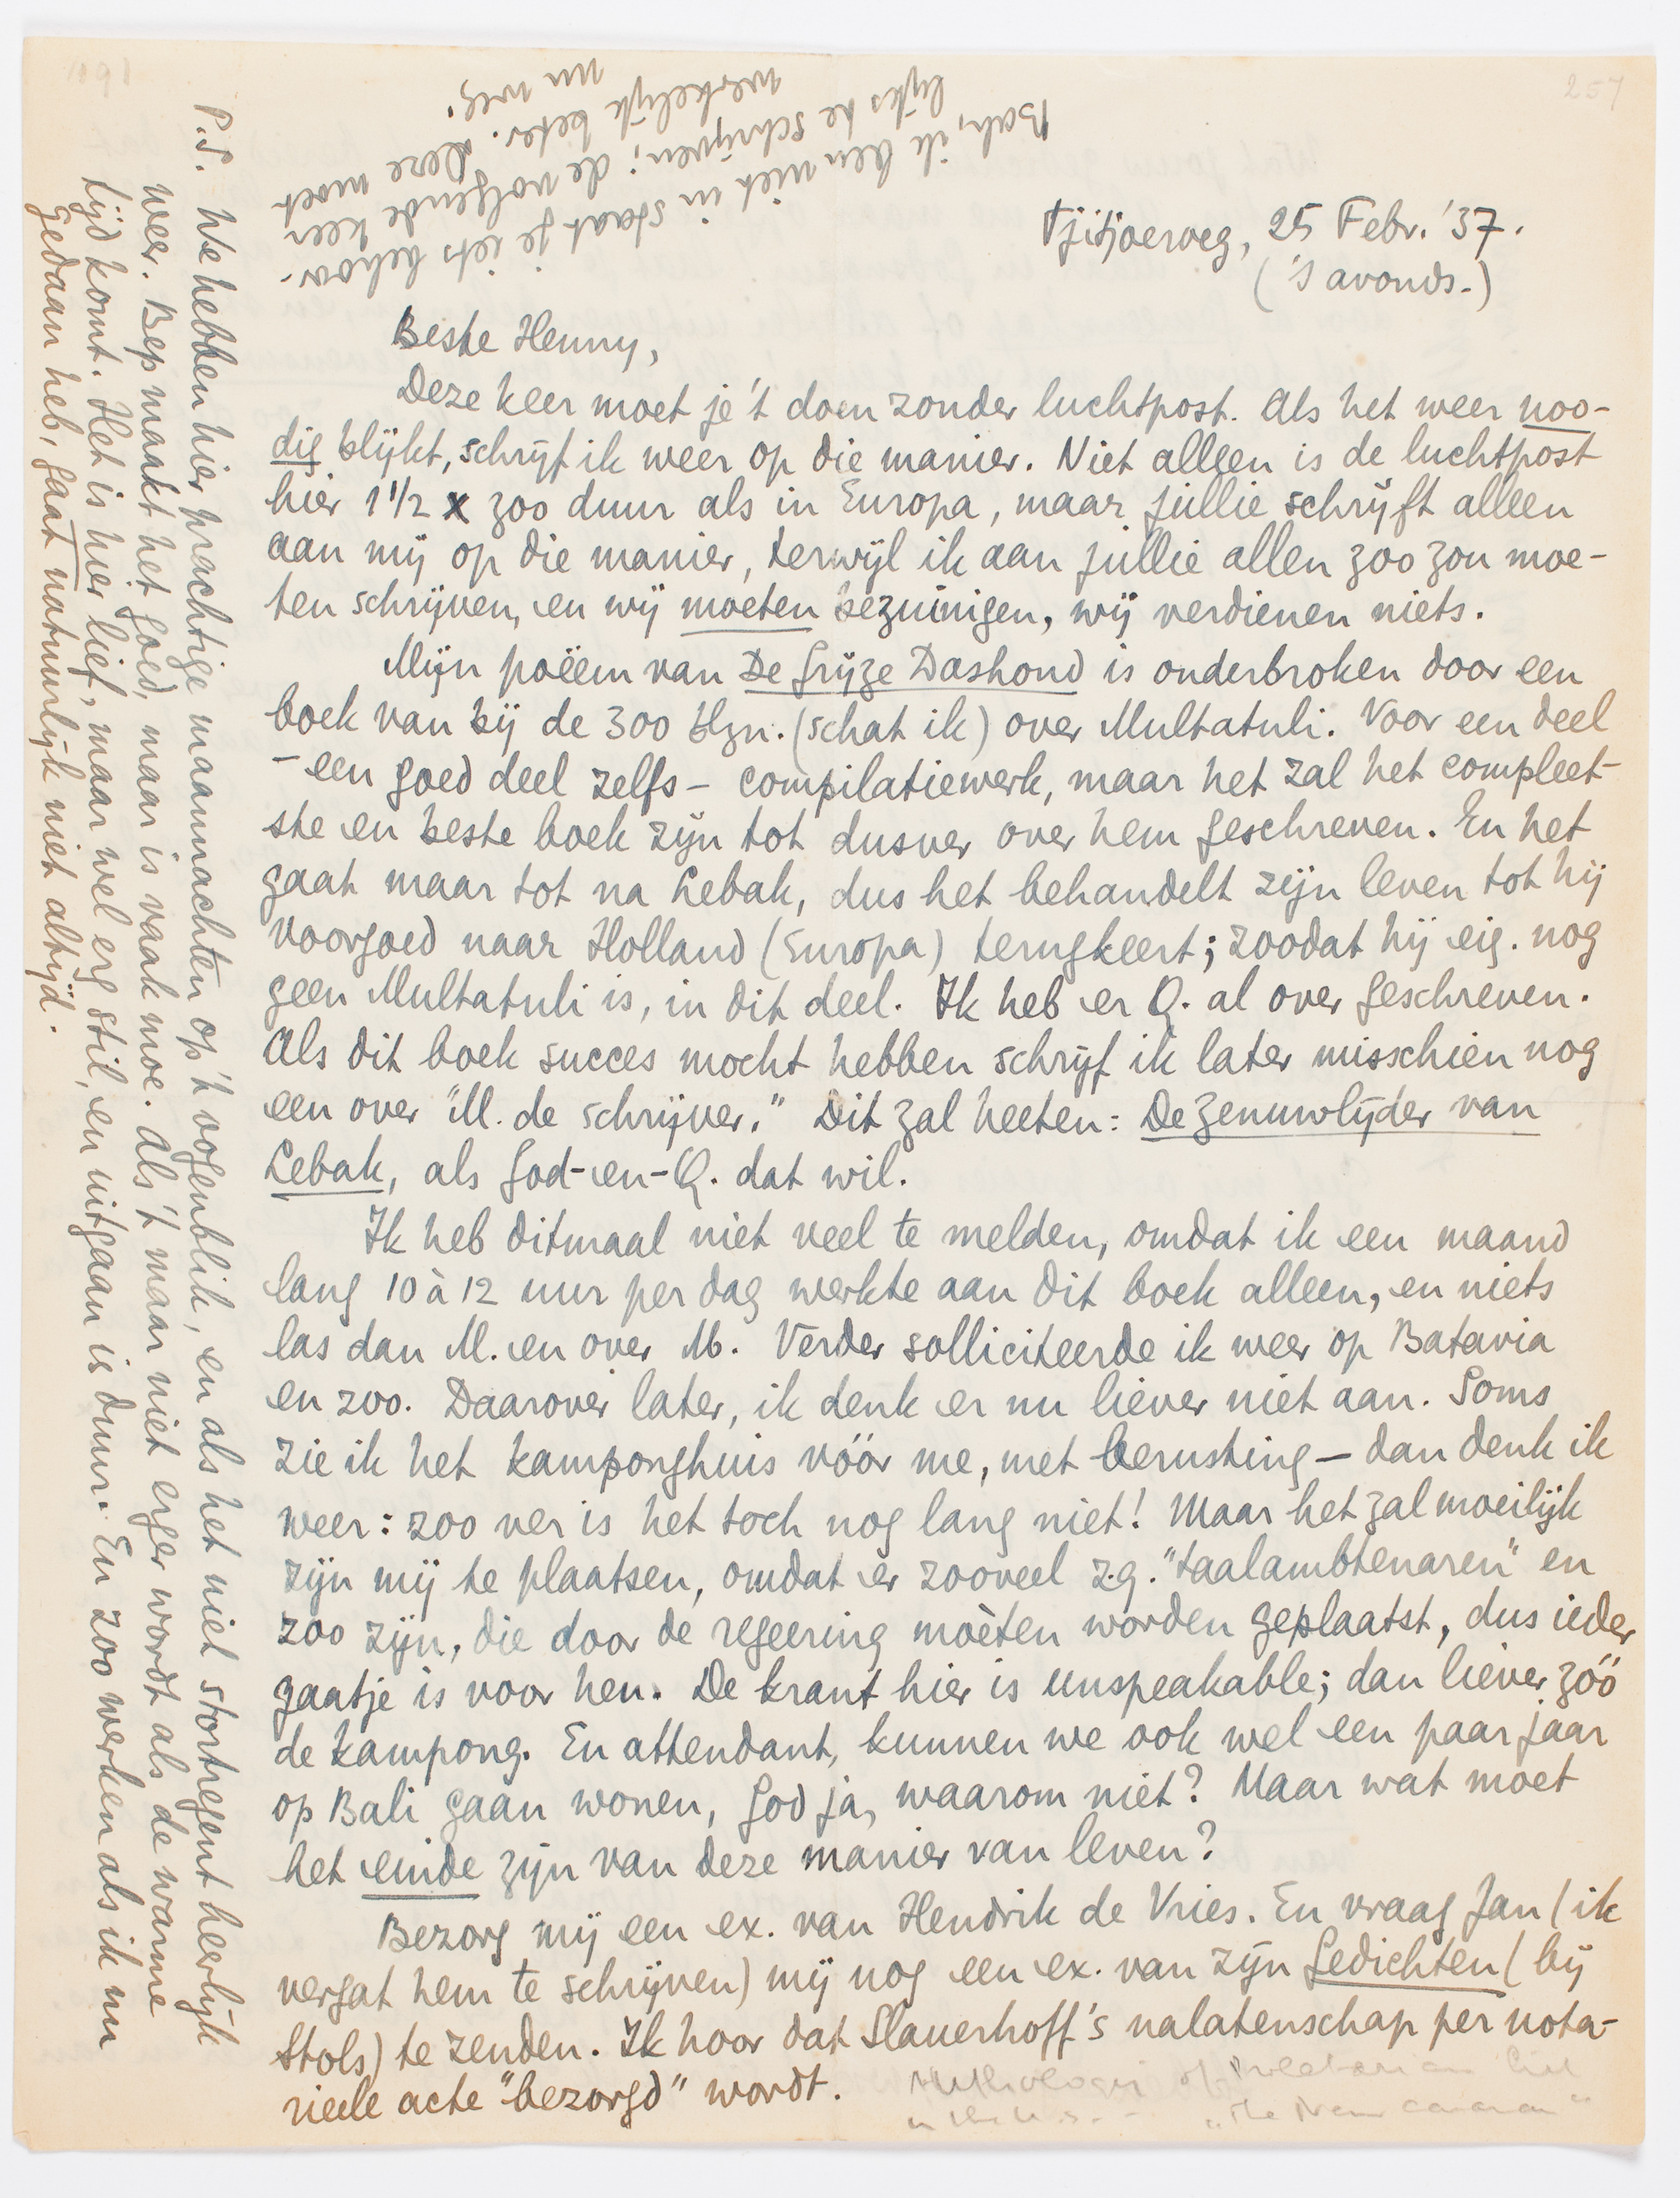 257
Tjitjoerveg, 25 Febr. '37.
('s avonds.)
Beste Henny,
Deze keer moet je 't doen zonder luchtpost. Als het weer noo-
dig blijkt, schrijf ik weer op die manier. Niet alleen is de luchtpost
hier 1 1/2 x zoo duur als in Europa, maar jullie schrijft alleen
aan mij op die manier, terwijl ik aan jullie allen zoo zou moe-
ten schrijven, en wij moeten bezuinigen, wij verdienen niets.
Mijn poëem van De Grijze Dashond is onderbroken door een
boek van bij de 300 blzn. (schat ik) over Multatuli. Voor een deel
- een goed deel zelfs - compilatiewerk, maar het zal het compleet-
ste en beste boek zijn tot dusver over hem geschreven. En het
gaat maar tot na Lebak, dus het behandelt zijn leven tot hij
voorgoed naar Holland (Europa) terugkeert; zoodat hij eig. nog
geen Multatuli is, in dit deel. Ik heb er Q. al over geschreven.
Als dit boek succes mocht hebben schrijf ik later misschien nog
een over "M. de schrijver." Dit zal heeten: De Zenuwlijder van
Lebak, als God-en-Q. dat wil.
Ik heb ditmaal niet veel te melden, omdat ik een maand
lang 10 à 12 uur per dag werkte aan dit boek alleen, en niets
las dan M. en over M. Verder solliciteerde ik weer op Batavia
en zoo. Daarover later, ik denk er nu liever niet aan. Soms
zie ik het kamponghuis vóór me, met berusting - dan denk ik
weer: zoo ver is het toch nog lang niet! Maar het zal moeilijk
zijn mij te plaatsen, omdat er zooveel z.g. "taalambtenaren" en
zoo zijn, die door de regeering moèten worden geplaatst, dus ieder
gaatje is voor hen. De krant hier is unspeakable; dan liever zóó
de kampong. En attendant, kunnen we ook wel een paar jaar
op Bali gaan wonen, God ja, waarom niet? Maar wat moet
het einde zijn van deze manier van leven?
Bezorg mij een ex. van Hendrik de Vries. En vraag Jan (ik
vergat hem te schrijven) mij nog een ex. van zijn Gedichten (bij
Stols) te zenden. Ik hoor dat Slauerhoff's nalatenschap per nota-
rieele acte "bezorgd" wordt.
P.S. We hebben hier prachtige maannachten op 't oogenblik, en als het niet stortregent heerlijk
weer. Bep maakt het goed, maar is vaak moe. Als 't maar niet erger wordt als de warme
tijd komt. Het is hier lief, maar wel erg stil, en uitgaan is duur. En zoo werken als ik nu
gedaan heb, gaat natuurlijk niet altijd.
Bah, ik ben niet in staat je iets behoor-
lijks te schrijven; de volgende keer
werkelijk beter. Deze moet
nu weg.